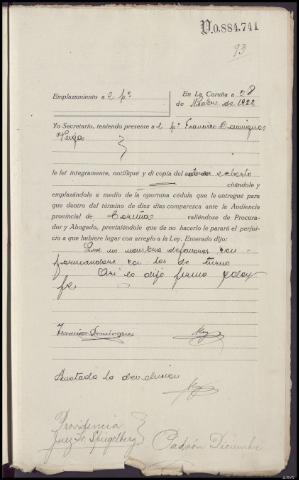 V.0.884.741
93
Emplazamiento a 2 pº
En La Coruña a 28
de de 1922
Yo Secretario, teniendo presente a 2 pº Francisco Domínguez
le leí íntegramente, notifiqué y dí copia del
citándole y
emplazándole a medio de la oportuna cédula que le entregué para
que dentro del término de diez días comparezca ante la Audiencia
provincial de Coruña valiéndose de Procura-
dor y Abogado, previniéndole que de no hacerlo le parará el perjui-
cio a que hubiere lugar con arreglo a la Ley. Enterado dijo:
nombra defensores con-
formándose con los de turno
Así lo dijo firma y doy
fe
Francisco Domínguez
Anotada la devolución
Providencia
Juez Sr. Spiegelberg
Padrón Diciembre